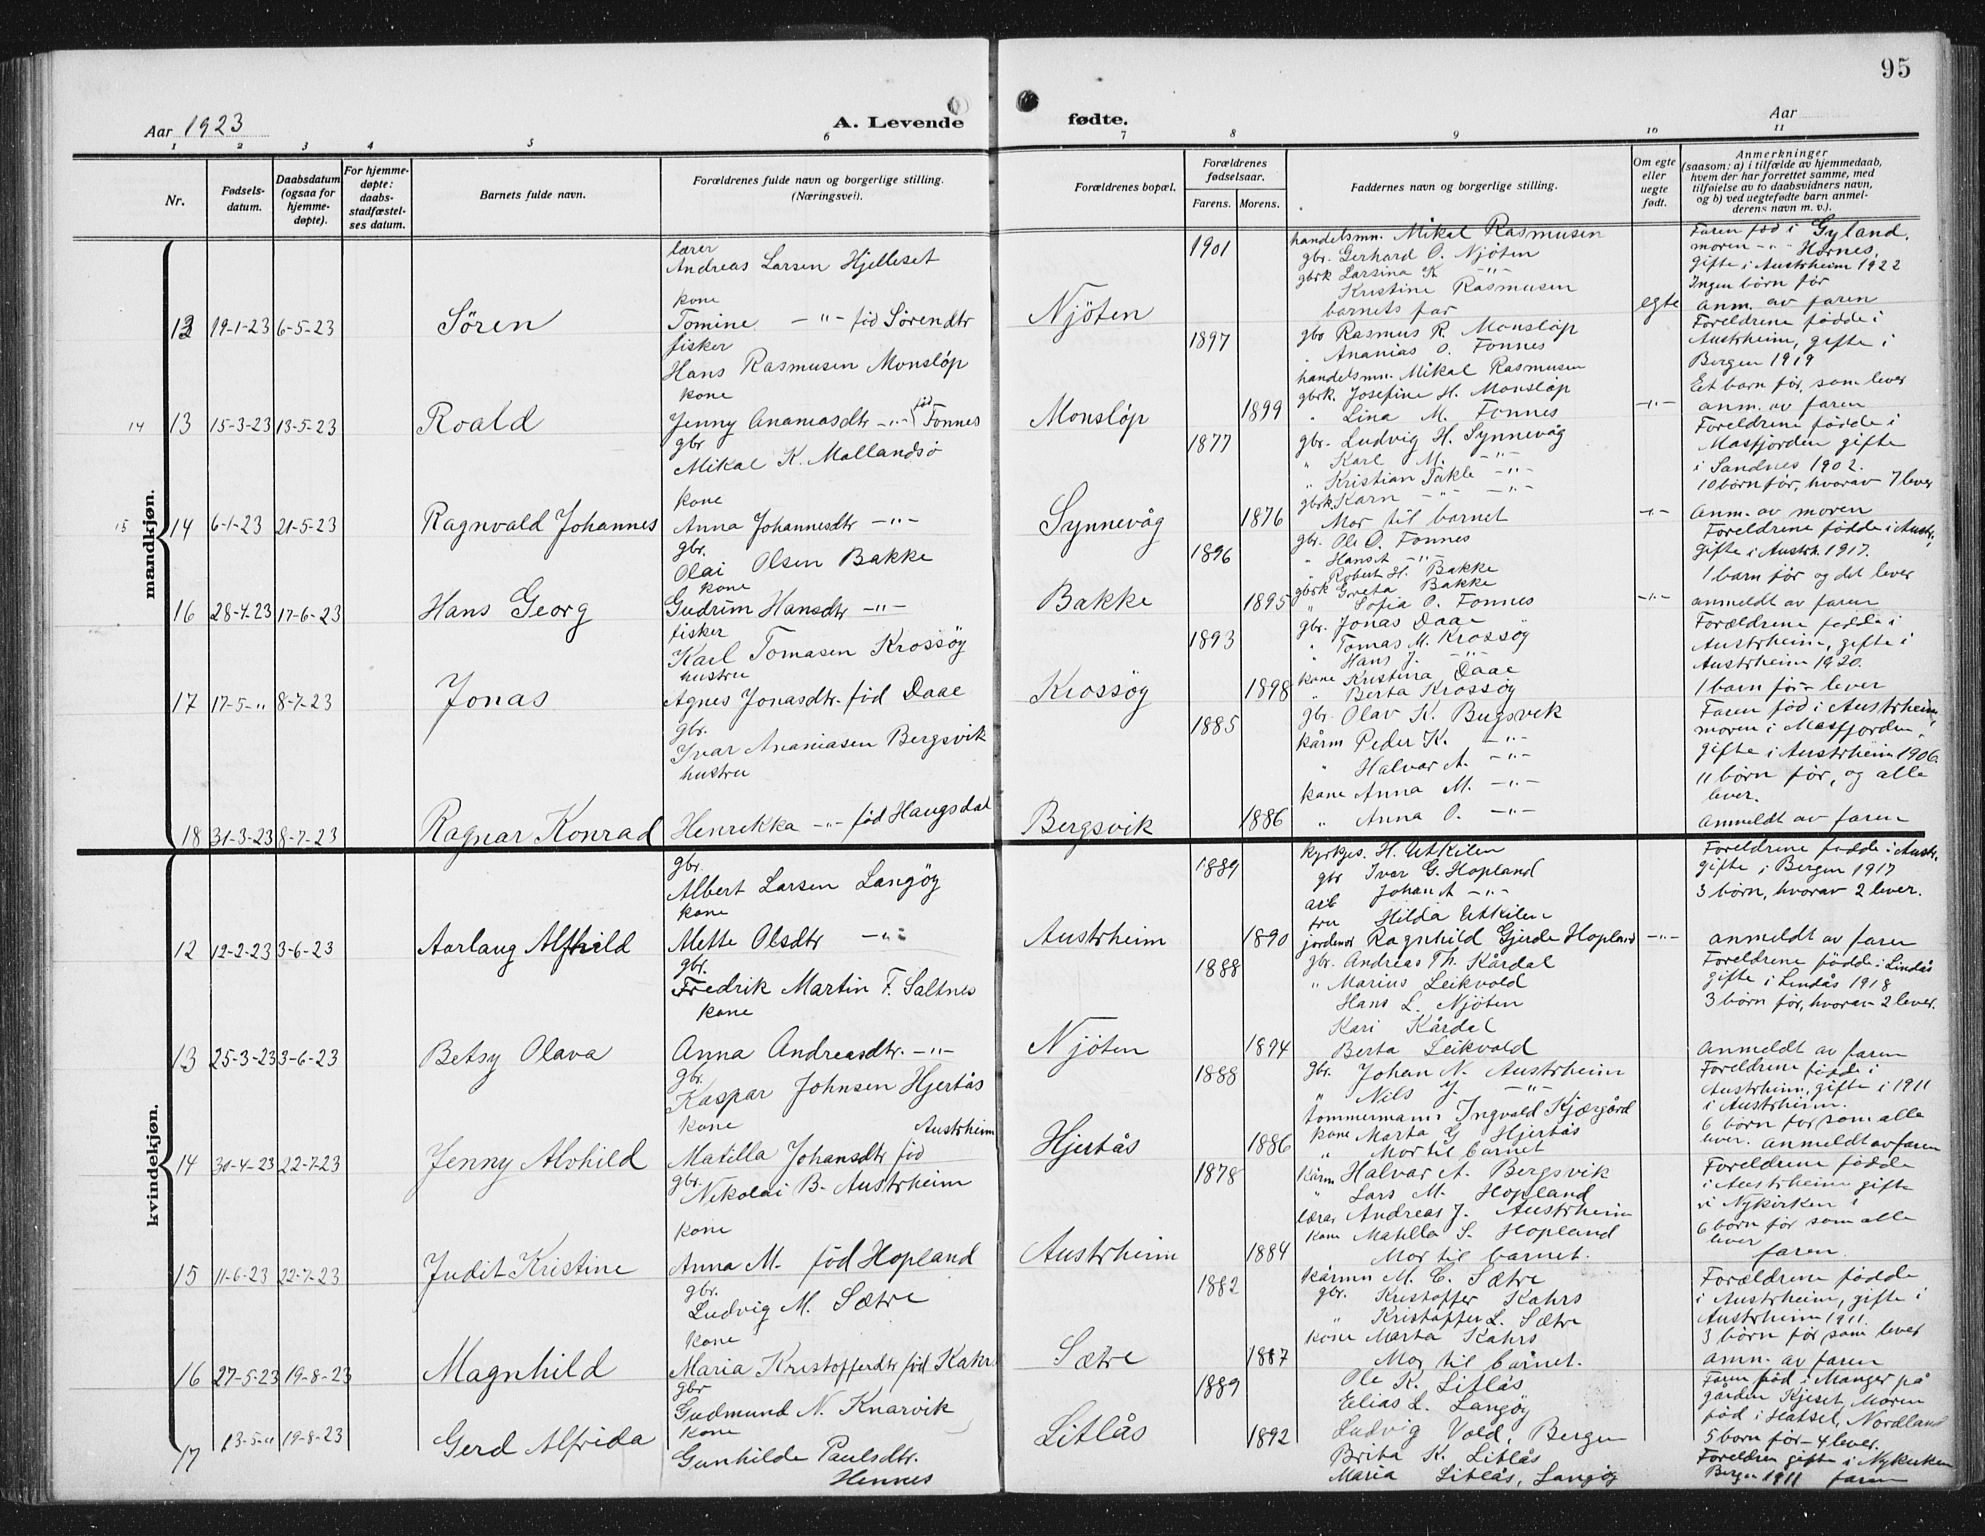 95
Aar 1923
A. Levende fødte.
Aar
1 2 3 4 5 6 7 8 9 10 11
Nr.
Fødselsdatum.
Daabsdatum (ogsaa for hjemmedøpte).
For hjemmedøpte: daabsstadfæstelses datum.
Barnets fulde navn.
Forældrenes fulde navn og borgerlige stilling. (Næringsvei).
Forældrenes bopæl.
Forældrenes fødselsaar.
Farens. Morens.
Faddernes navn og borgerlige stilling.
Om egte eller uegte født.
Anmerkninger (saasom: a) i tilfælde av hjemmedaab, hvem der har forrettet samme, med tilføielse av to daabsvidners navn, og b) ved uegtefødte barn anmelderens navn m. v.).
mandkjøn.
lærer
Andreas Larsen Hjelleset
kone
13 19-1-23 6-5-23 Sören Tomine -"- fød Sørendtr
Njöten
1901
handelsmn. Mikal Rasmusen
gbr. Gerhard O. Njöten
gbrk Larsina K -"-
Kristine Rasmusen
barnets far
egte
Faren fød i Gyland,
moren -"- Hornes,
gifte i Austrheim 1922
Ingen børn før
anm. av faren
fisker
Hans Rasmusen Monsløp
kone
14 13 15-3-23 13-5-23 Roald Jenny Ananiasdtr -"- fød Fonnes
Monsløp
1897 1899
gbr Rasmus R. Monsløp
" Ananias O. Fonnes
handelsmn. Mikal Rasmusen
gbrk. Josefine H. Monsløp
" Lina M. Fonnes
-"-
Foreldrene fødde i
Austrheim, gifte i
Bergen 1919
Eet barn før, som lever
anm. av faren
gbr
Mikal K. Mollandsø
kone
15 14 6-1-23 21-5-23 Ragnvald Johannes Anna Johannesdtr -"-
Synnevåg
1877 1876
gbr. Ludvig H. Synnevåg
" Karl M. -"-
" Kristian Takle -"-
gbrk Karn -"- -"-
Mor til barnet
-"-
Foreldrene fødde i
Masfjorden gifte
i Sandnes 1902.
10 børn før, hvorav 7 lever
Anm. av moren
gbr.
Olai Olsen Bakke
kone
16 28-4-23 17-6-23 Hans Georg Gudrun Hansdtr -"-
Bakke
1896 1895
gbr. Ole O. Fonnes
" Hans A -"-
" Robert H. Bakke
gbrk Greta Bakke
" Sofia O. Fonnes
-"-
Foreldrene fødde i Austr.,
gifte i Austrh. 1917.
1 barn før og det lever
anmeldt av faren
fisker
Karl Tomasen Krossøy
hustru
17 17-5-" 8-7-23 Jonas Agnes Jonasdtr. fød Daae
Krossøy
1893 1898
gbr. Jonas Daae
" Tomas M. Krossøy
" Hans J. -"-
kone Kristina Daae
" Berta Krossøy
Forældrene fødde i
Austrheim, gifte i
Austrheim 1920.
1 barn før lever
gbr.
Ivar Ananiasen Bergsvik
hustru
18 31-3-23 8-7-23 Ragnar Konrad Henrekka -"- fød Haugsdal
Bergsvik
1885 1886
gbr. Olav K. Bugsvik
kårm Peder K. -"-
" Halvar A. -"-
kone Anna M. -"-
" Anna O. -"-
Faren fød i Austrheim,
moren i Masfjorden,
gifte i Austrheim 1906
11 børn før, og alle
lever.
anmeldt av faren
kvindekjøn.
gbr.
Albert Larsen Langøy
kone
12 12-2-23 3-6-23 Aarlaug Alfhild Alette Olsdtr -"-
Austrheim
1889 1890
kyrkjes. H. Utkilen
gbr Ivar G. Hopland
arb Johan A -"-
fru Hilda Utkilen
jordmor Ragnhild Gjerde Hopland
-"-
Foreldrene fødde i Austr.
gifte i Bergen 1917
3 børn, hvorav 2 lever.
anmeldt av faren
gbr.
Fredrik Martin F. Saltnes
kone
13 25-3-23 3-6-23 Betsy Olava Anna Andreasdtr. -"-
Njöten
1888 1894
gbr. Andreas Th. Kårdal
" Marius Leikvold
Hans L. Njöten
Kari Kårdal
Berta Leikvold
Foreldrene fødde i Lindås
gifte i Lindås 1918
3 børn før, hvorav 2 lever.
Anmeldt av faren
gbr.
Kaspar Johnsen Hjertås
kone Austrheim
14 30-4-23 22-7-23 Jenny Alvhild Matilla Johansdtr fød
Hjertås
1888 1886
gbr. Johan N. Austrheim
" Nils J. -"-
tømmermann Ingvald Kjærgård
kone Marta G Hjertås
" Mor til barnet
Foreldrene fødde i
Austrheim, gifte i 1911
i Austrheim.
6 børn før som alle
lever. anmeldt av faren
gbr.
Nikolai B. Austrheim
kone
15 11-6-23 22-7-23 Judit Kristine Anna M. fød Hopland
Austrheim
1878 1884
kårm Halvar A. Bergsvik
" Lars M. Hopland
lærar Andreas J. Austrheim
kone Matilla S. Hopland
Mor til barnet.
Foreldrene fødde
i Austrheim gifte
i Nykirken i
6 børn før som alle
lever
faren.
gbr.
Ludvig M. Sætre
kone
16 27-5-23 19-8-23 Magnhild Maria Kristofferdtr fød Kahrs
Sætre
1882 1887
kårmn M. C. Sætre
gbr. Kristoffer Kahrs
" Kristoffer L. Sætre
kone Marta Kahrs
Mor til barnet.
Forældrene fødde
i Austrheim, gifte i
Austrheim 1911.
3 børn før som lever
anm. av faren
gbr
Gudmund N. Knarvik
kone
17 13-5-" 19-8-23 Gerd Alfrida Gunhilde Paulsdtr.
Hennes
Litlås
1889 1892
Ole K. Litlås
Elias L. Langøy
Ludvig Vold, Bergen
Brita K. Litlås
Maria Litlås, Langøy
Faren fød i Manger på
gården Kjeset, Moren
fød i Hatsel, Nordland
5 børn før - 4 lever.
Foreldren gifte i Nykirken
Bergen 1911 faren